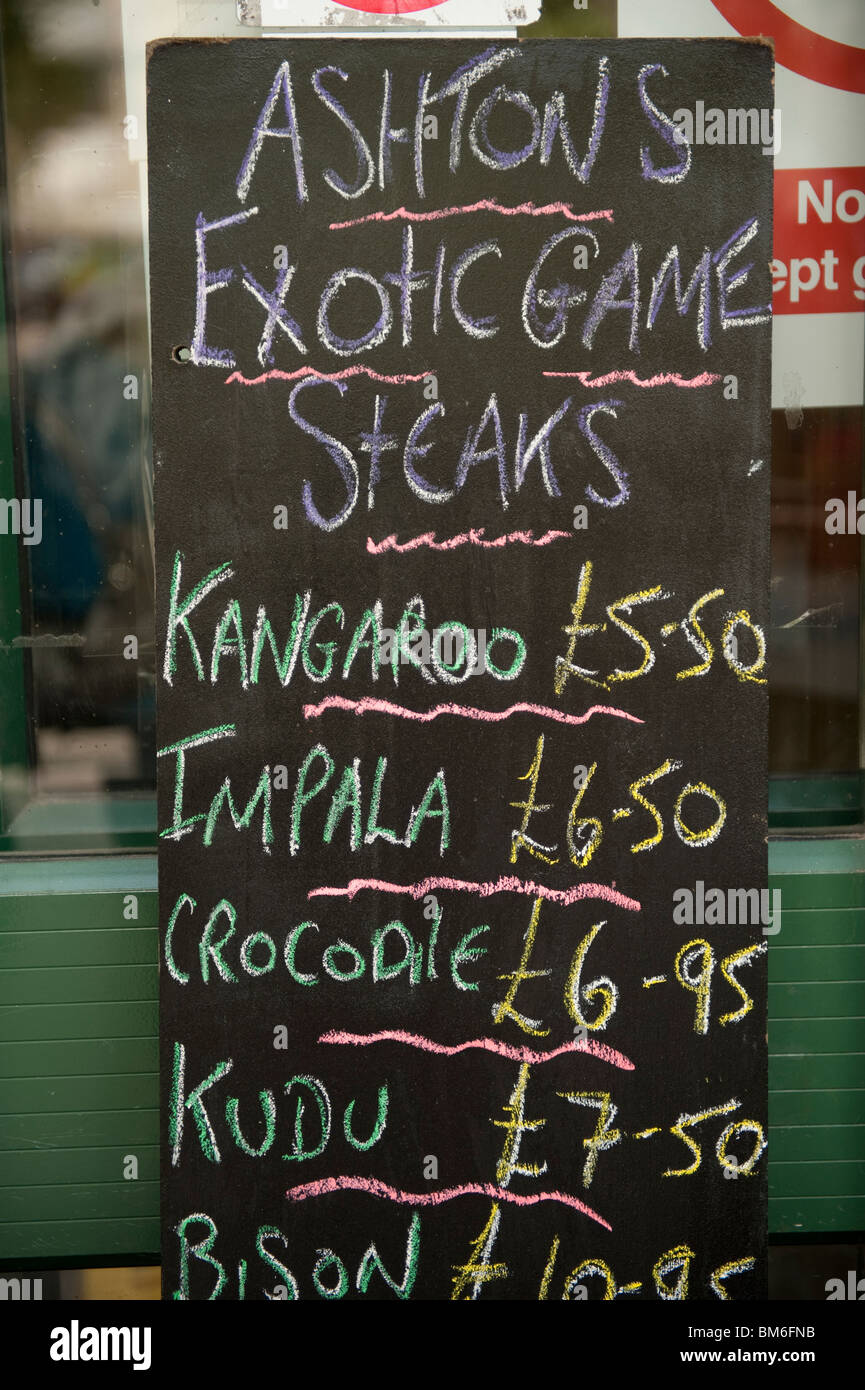 ASHTONS
EXOTIC GAME
STEAKS
KANGAROO £5-50
IMPALA £6-50
CROCODILE £6-95
KUDU £7-50
BISON £10-95
No
ept g
alamy
Image ID: BM6FNB
www.alamy.com